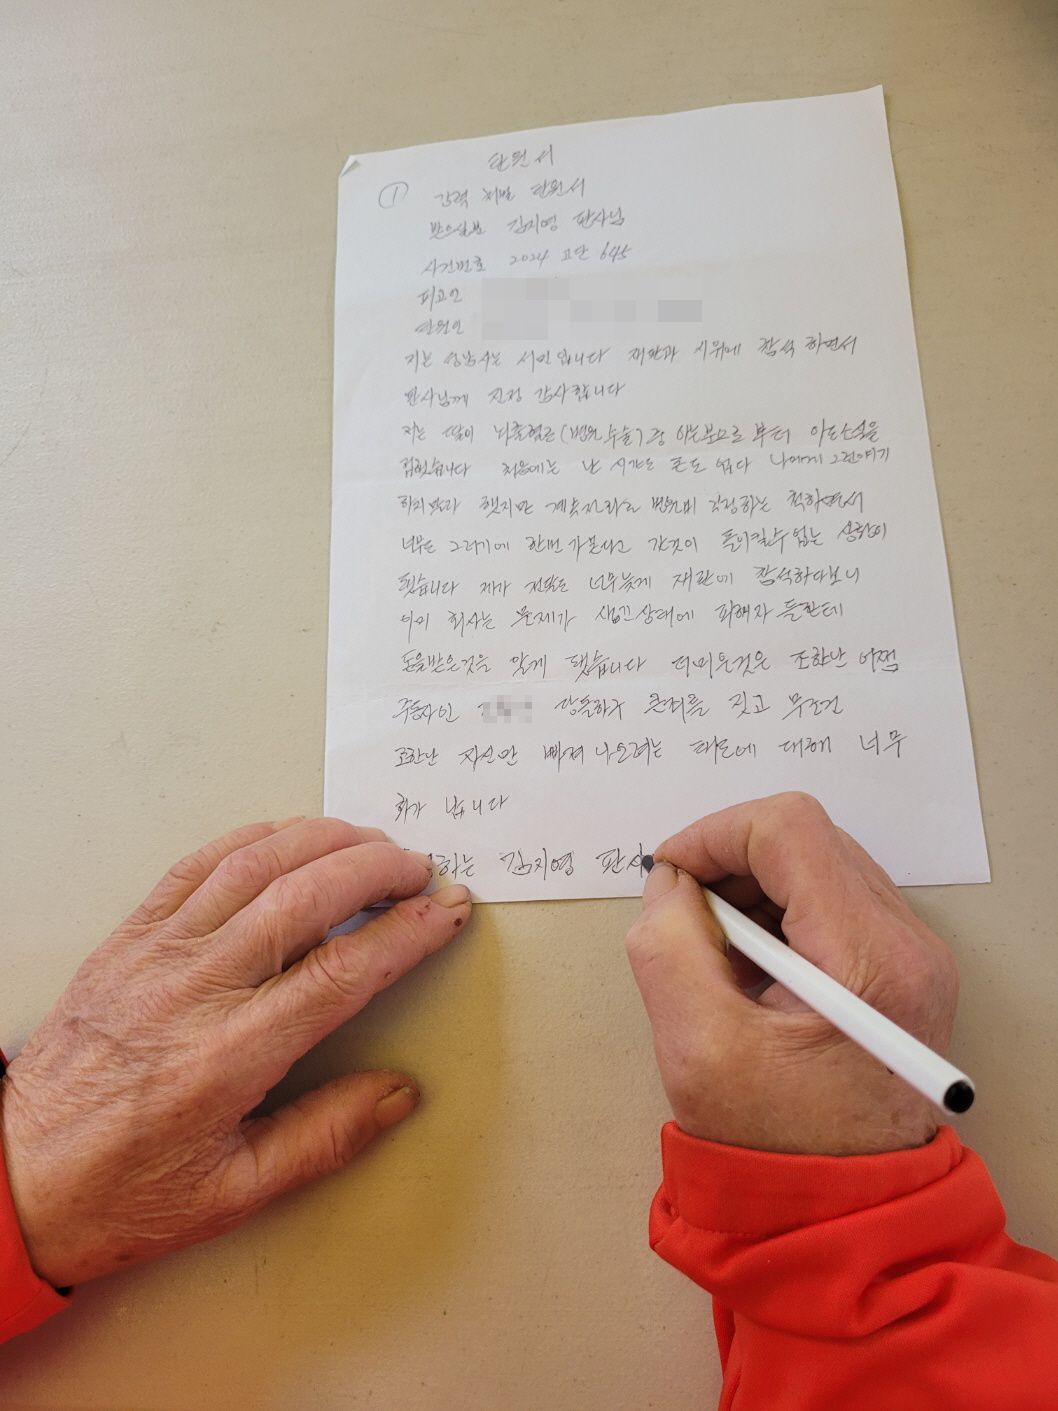 탄원서
① 강력 처벌 탄원서
받으실분 김지영 판사님
사건번호 2024 고단 645
피고인
탄원인
저는 성남사는 서민입니다 재판과 시위에 참석하면서
판사님께 진정 감사합니다
저는 딸이 뇌출혈로 (병원 수술) 강 아는분으로부터 아도소식을
접했습니다 처음에는 난 시간도 돈도 없다 나에게 그런얘기
하지말라 했지만 계속전화로 병원비 걱정하는 척하면서
너무도 그러기에 한번 가본다고 간것이 돌이킬수없는 상황이
됐습니다 제가 전말은 너무늦게 재판에 참석하다보니
이미 회사는 문제가 생긴상태에 피해자들한테
돈을받은것을 알게 됐습니다 더미운것은 조한난 어쩜
주동자인 당돌하구 큰죄를 짓고 무조건
조한난 자신만 빠져나오려는 태도에 대해 너무
화가 납니다
하는 김지영 판사